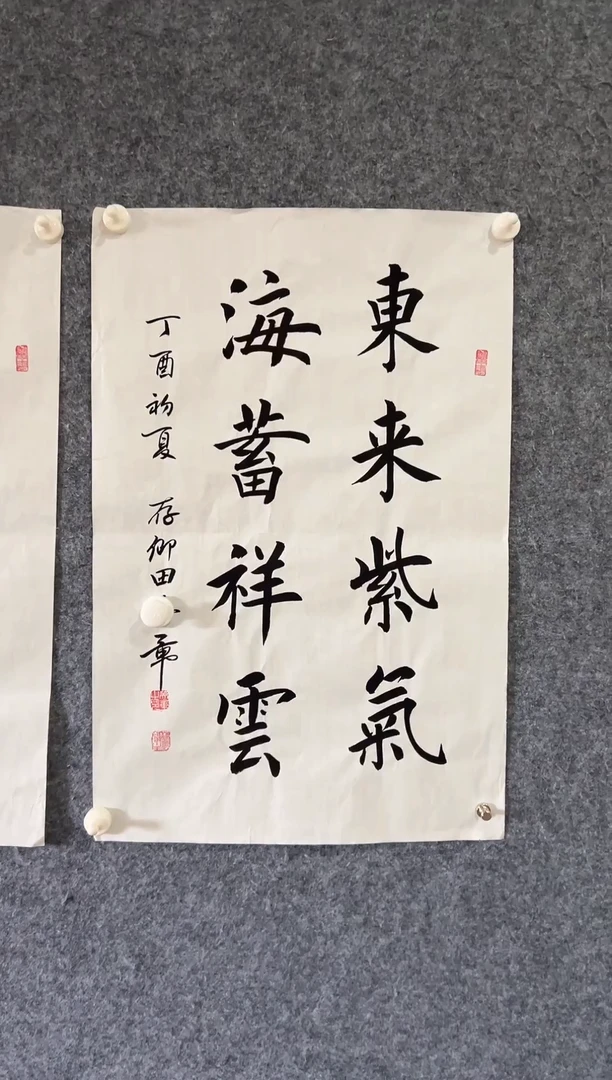 東来紫氣
海蓄祥雲
丁酉初夏 存御田 章